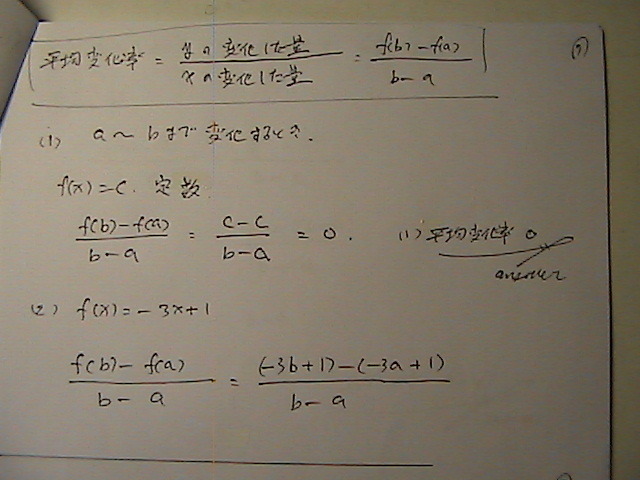 平均変化率 = yの変化した量 / xの変化した量 = f(b)-f(a) / b-a
(1) a～bまで変化するとき.
f(x)=c. 定数.
f(b)-f(a) / b-a = c-c / b-a = 0. (1) 平均変化率 0
answer
(2) f(x)=-3x+1
f(b)-f(a) / b-a = (-3b+1)-(-3a+1) / b-a